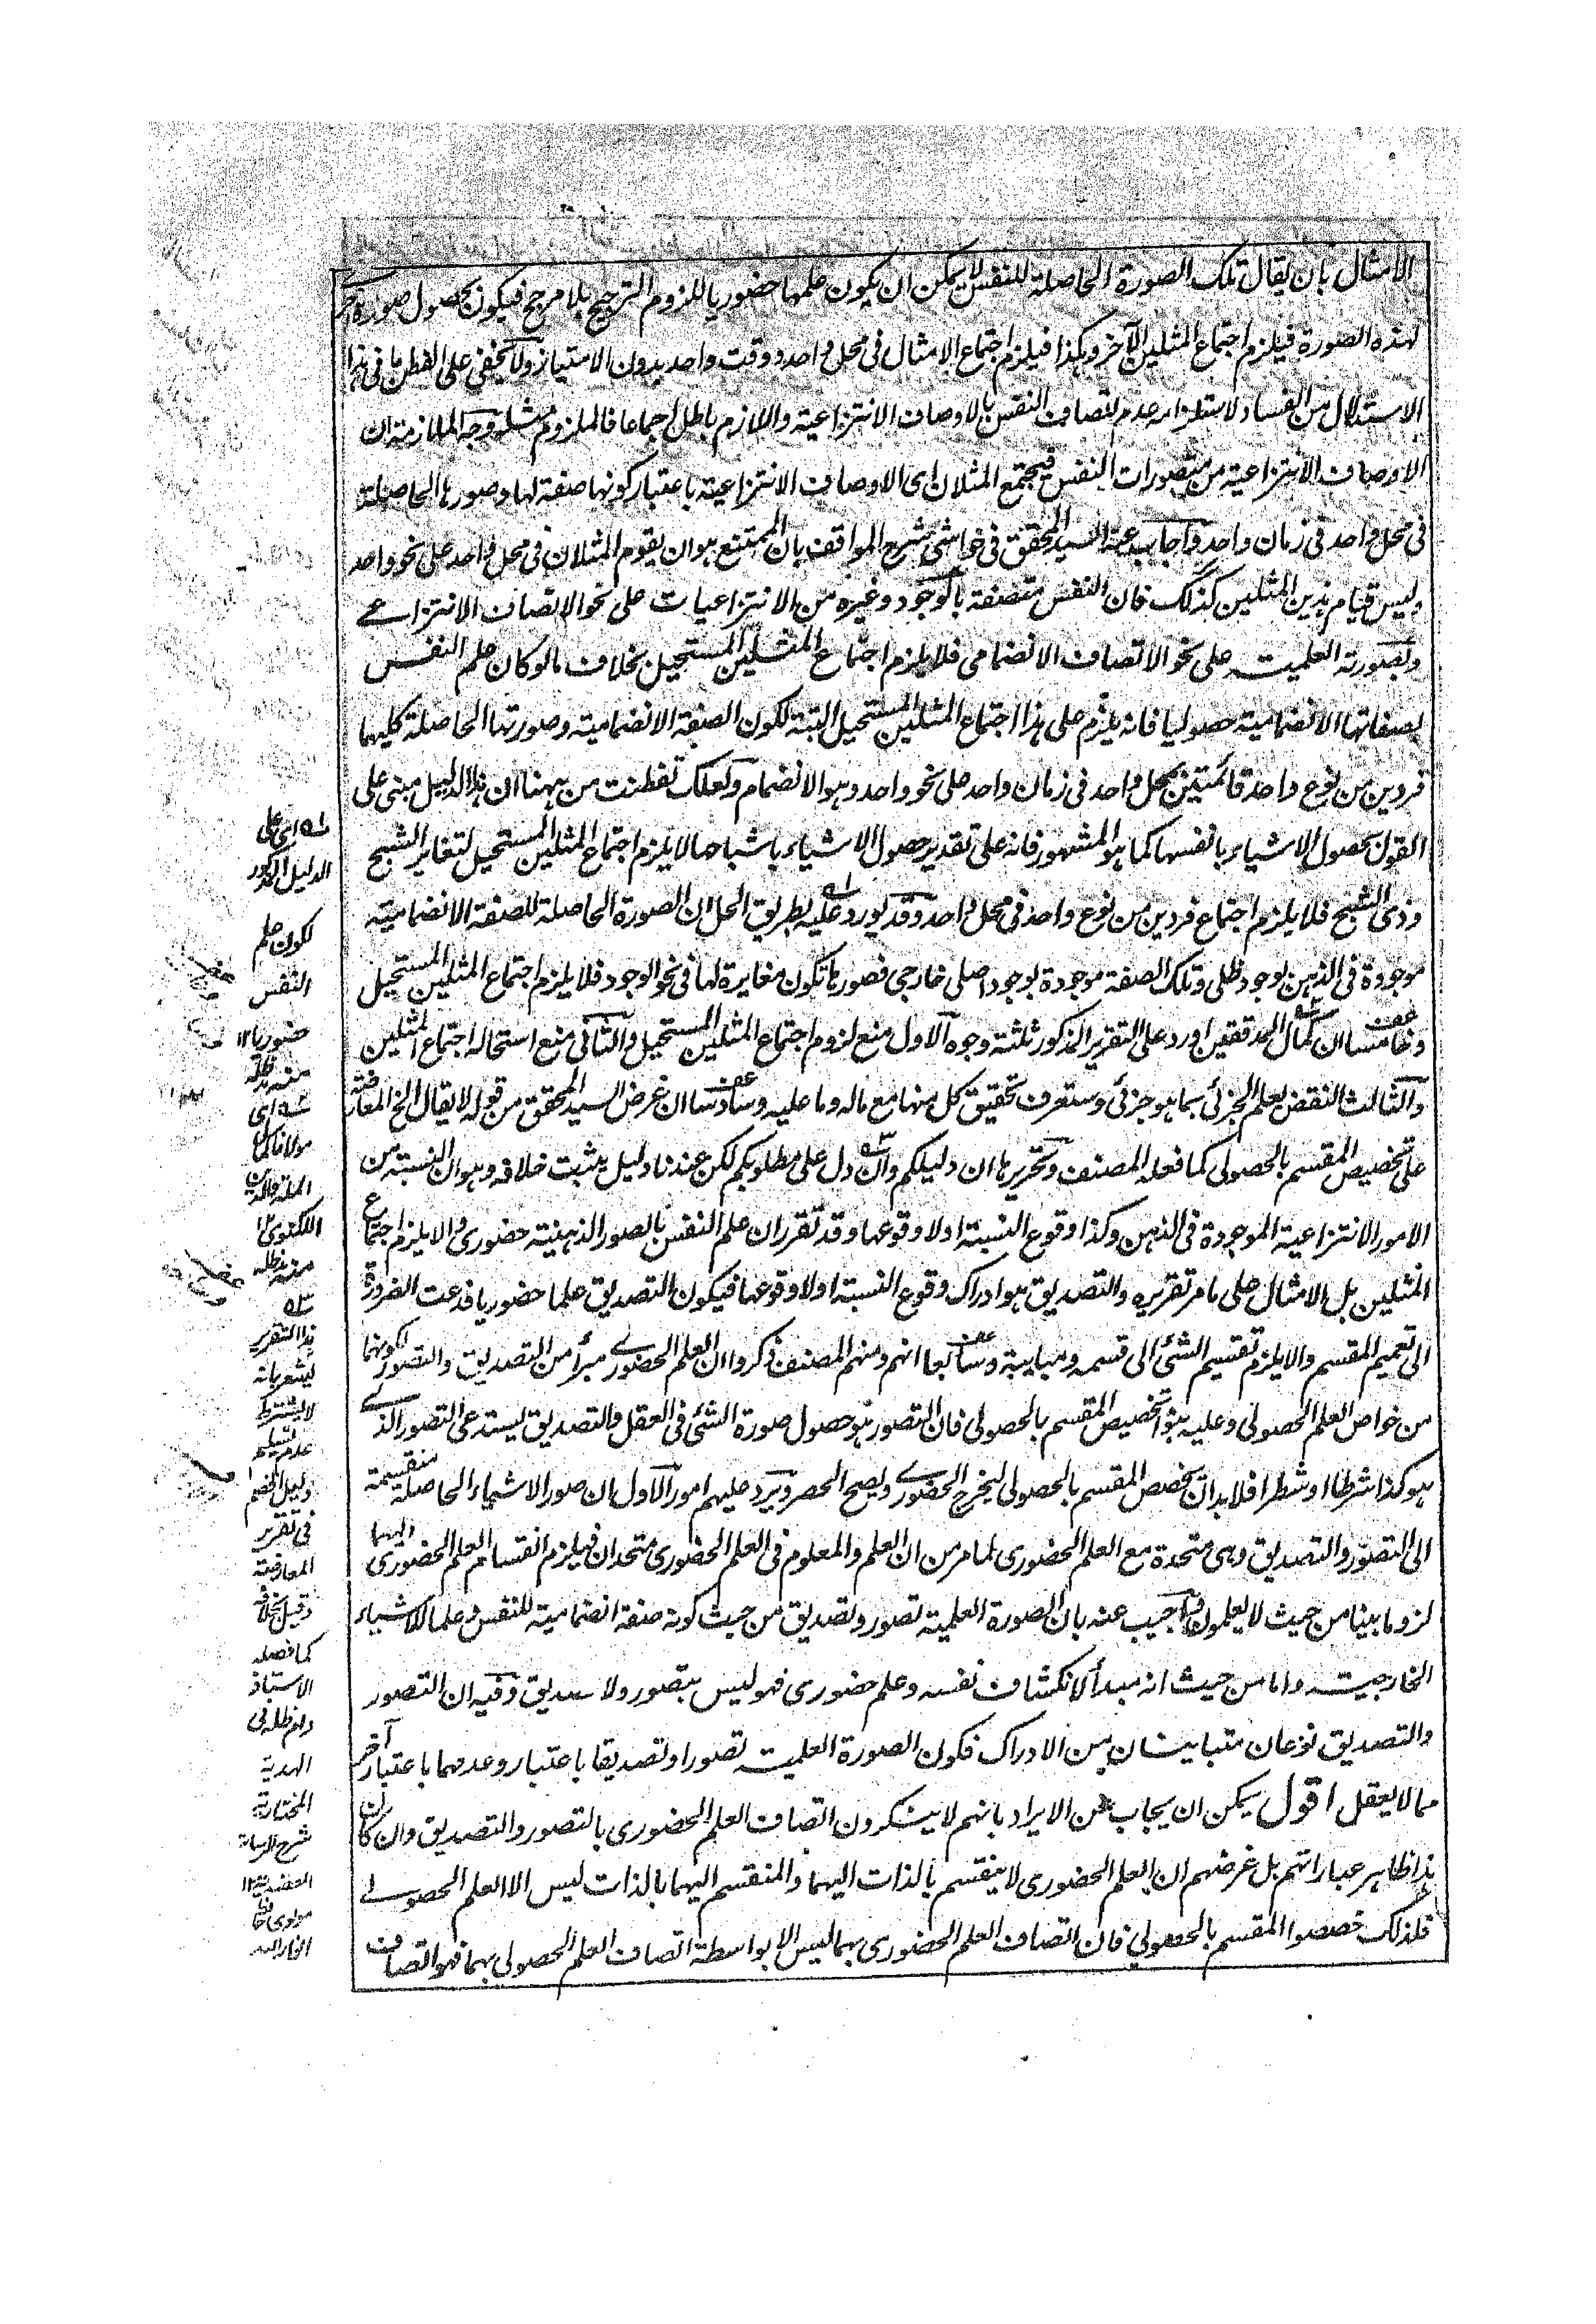 الامثال بان يقال تلك الصورة الحاصلة للنفس لا يمكن ان يكون علمها حضوريا للزوم الترجيح بلا مرجح فيكون بحصول صورة اخرى
لهذه الصورة فيلزم اجتماع المثلين الآخر وهكذا فيلزم اجتماع الامثال فى محل واحد ووقت واحد بدون الامتياز ولا يخفى على الفطن ما فى هذا
الاستدلال من الفساد لاستلزامه عدم اتصاف النفس بالاوصاف الانتزاعية واللازم باطل اجماعا فالملزوم مثله وجه الملازمة ان
الاوصاف الانتزاعية من متصورات النفس فيجتمع المثلان اى الاوصاف الانتزاعية باعتبار كونها صفة لها وصورها الحاصلة
فى محل واحد فى زمان واحد واجاب عنه السيد المحقق فى حواشى شرح المواقف بان الممتنع هو ان يقوم المثلان فى محل واحد على نحو واحد
وليس قيام هذين المثلين كذلك فان النفس متصفة بالوجود وغيره من الانتزاعيات على نحو الاتصاف الانتزاعى
وبصورته العلمية على نحو الاتصاف الانضمامى فلا يلزم اجتماع المثلين المستحيل بخلاف ما لو كان علم النفس
بصفاتها الانضمامية حصوليا فانه يلزم على هذا اجتماع المثلين المستحيل البتة لكون الصفة الانضمامية وصورتها الحاصلة كليهما
فردين من نوع واحد قائمتين بمحل واحد فى زمان واحد على نحو واحد وهو الانضمام ولعلك تفطنت من ههنا ان هذا الدليل مبنى على
القول بحصول الاشياء بانفسها كما هو المشهور فانه على تقدير حصول الاشياء باشباحها لا يلزم اجتماع المثلين المستحيل لتغاير الشبح
وذى الشبح فلا يلزم اجتماع فردين من نوع واحد فى محل واحد وقد يورد عليه بطريق الحل ان الصورة الحاصلة للصفة الانضمامية
موجودة فى الذهن بوجود ظلى وتلك الصفة موجودة بوجود اصلى خارجى فصورها تكون مغايرة لها فى نحو الوجود فلا يلزم اجتماع المثلين المستحيل
وخامسا ان كمال المدققين اورد على التقرير المذكور ثلثة وجوه الاول منع لزوم اجتماع المثلين المستحيل والثانى منع استحالة اجتماع المثلين
والثالث النقض بعلم الجزئى بما هو جزئى وستعرف تحقيق كل منها مع ماله وما عليه وسادسا ان غرض السيد المحقق من قوله لا يقال الخ المعارضة
على تخصيص المقسم بالحصولى كما فعله المصنف وتحريرها ان دليلكم وان دل على مطلوبكم لكن عندنا دليل يثبت خلافه وهو ان النسبة من
الامور الانتزاعية الموجودة فى الذهن وكذا وقوع النسبة اولا وقوعها وقد تقرر ان علم النفس بالصور الذهنية حضورى والا يلزم اجتماع
المثلين بل الامثال على ما مر تقريره والتصديق هو ادراك وقوع النسبة اولا وقوعها فيكون التصديق علما حضوريا فدعت الضرورة
الى تعميم المقسم والا يلزم تقسيم الشئ الى قسمه ومباينه وسابعا انهم ومنهم المصنف ذكروا ان العلم الحضورى مبرأ من التصديق والتصور لكونهما
من خواص العلم الحصولى وعليه بنوا تخصيص المقسم بالحصولى فان التصور هو حصول صورة الشئ فى العقل والتصديق يستدعى التصور الذى
هو كذا شرطا او شطرا فلا بد ان يخصص المقسم بالحصولى ليخرج الحضورى ويصح الحصر ويرد عليهم امور الاول ان صور الاشياء الحاصلة منقسمة
الى التصور والتصديق وهى متحدة مع العلم الحضورى لما مر من ان العلم والمعلوم فى العلم الحضورى متحدان فيلزم انقسام العلم الحضورى اليهما
لزوما بينا من حيث لا يعلمون واجيب عنه بان الصورة العلمية تصور وتصديق من حيث كونه صفة انضمامية للنفس وعلما للاشياء
الخارجية واما من حيث انه مبدأ لانكشاف نفسه وعلم حضورى فهو ليس بتصور ولا تصديق وفيه ان التصور
والتصديق نوعان متباينان من الادراك فكون الصورة العلمية تصورا وتصديقا باعتبار وعدمهما باعتبار آخر
مما لا يعقل اقول يمكن ان يجاب عن الايراد بانهم لا ينكرون اتصاف العلم الحضورى بالتصور والتصديق وان كان
هذا ظاهر عباراتهم بل غرضهم ان العلم الحضورى لا ينقسم بالذات اليهما والمنقسم اليهما بالذات ليس الا العلم الحصولى
فلذلك خصصوا المقسم بالحصولى فان اتصاف العلم الحضورى بهما ليس الا بواسطة اتصاف العلم الحصولى بهما فهو اتصاف
اى على
الدليل المذكور
لكون علم
النفس
حضوريا ١٢
منه مد ظله
اى
مولانا كمال
الملة والدين
اللكنوى ١٢
منه مد ظله
هذا التقرير
يشعر بانه
لا يشترط
عدم تسليم
دليل الخصم
فى تقرير
المعارضة
وقيل بخلافه
كما فصله
الاستاذ
دام ظله فى
الهدية
المختارية
شرح الرسالة
العضدية ١٢